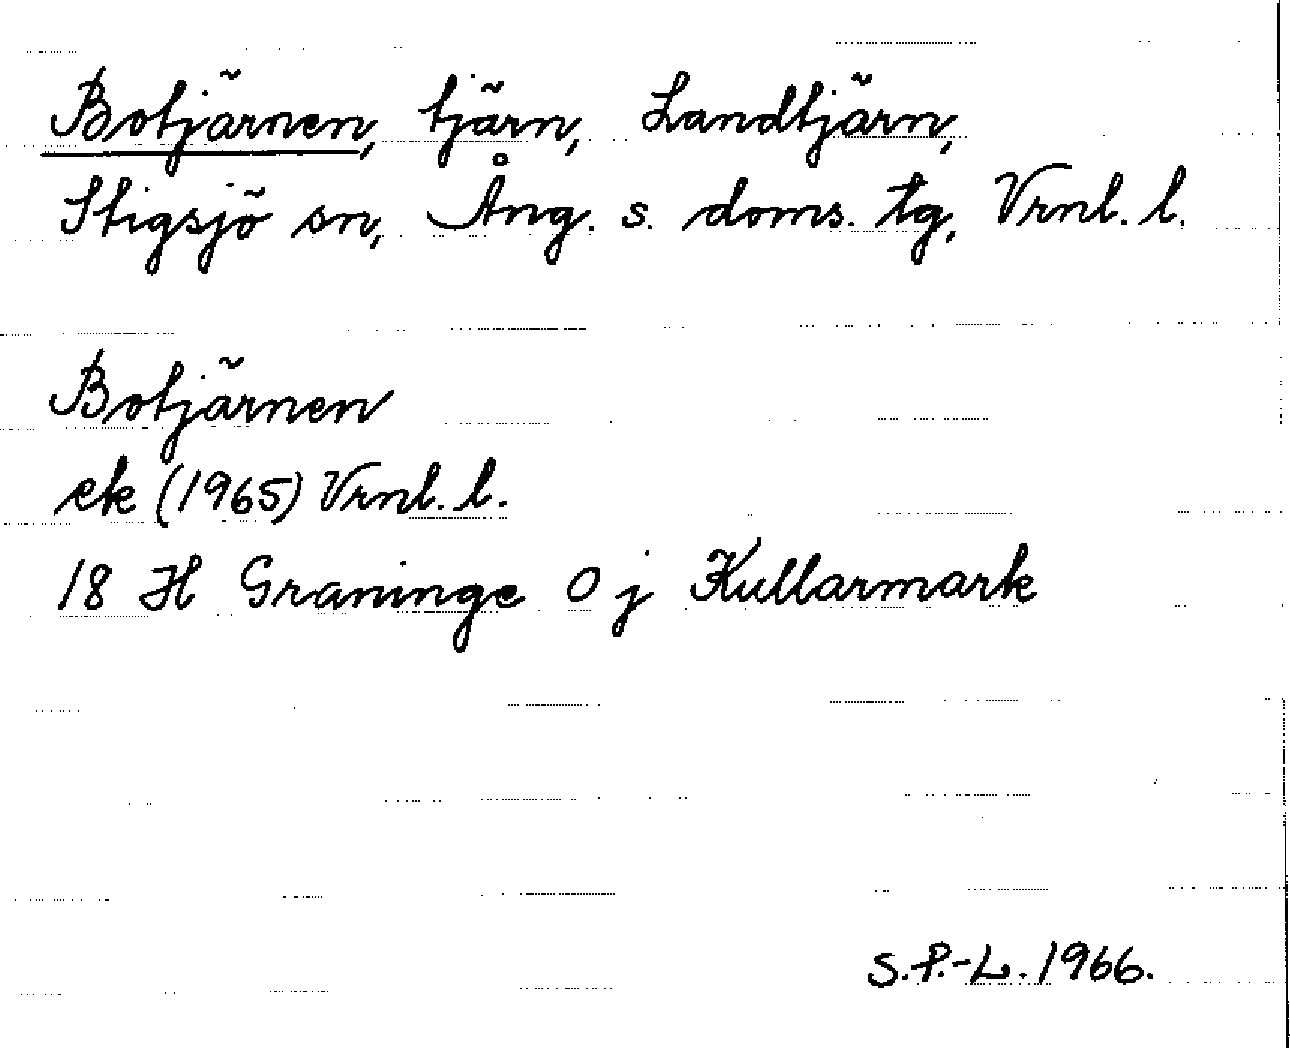 Botjärnen, tjärn, Landtjärn,
Stigsjö sn, Ång. s. doms. tg, Vrnl. l.
Botjärnen
ek (1965) Vrnl. l.
18 H Graninge 0 j Kullarmark
S.P.-L. 1966.